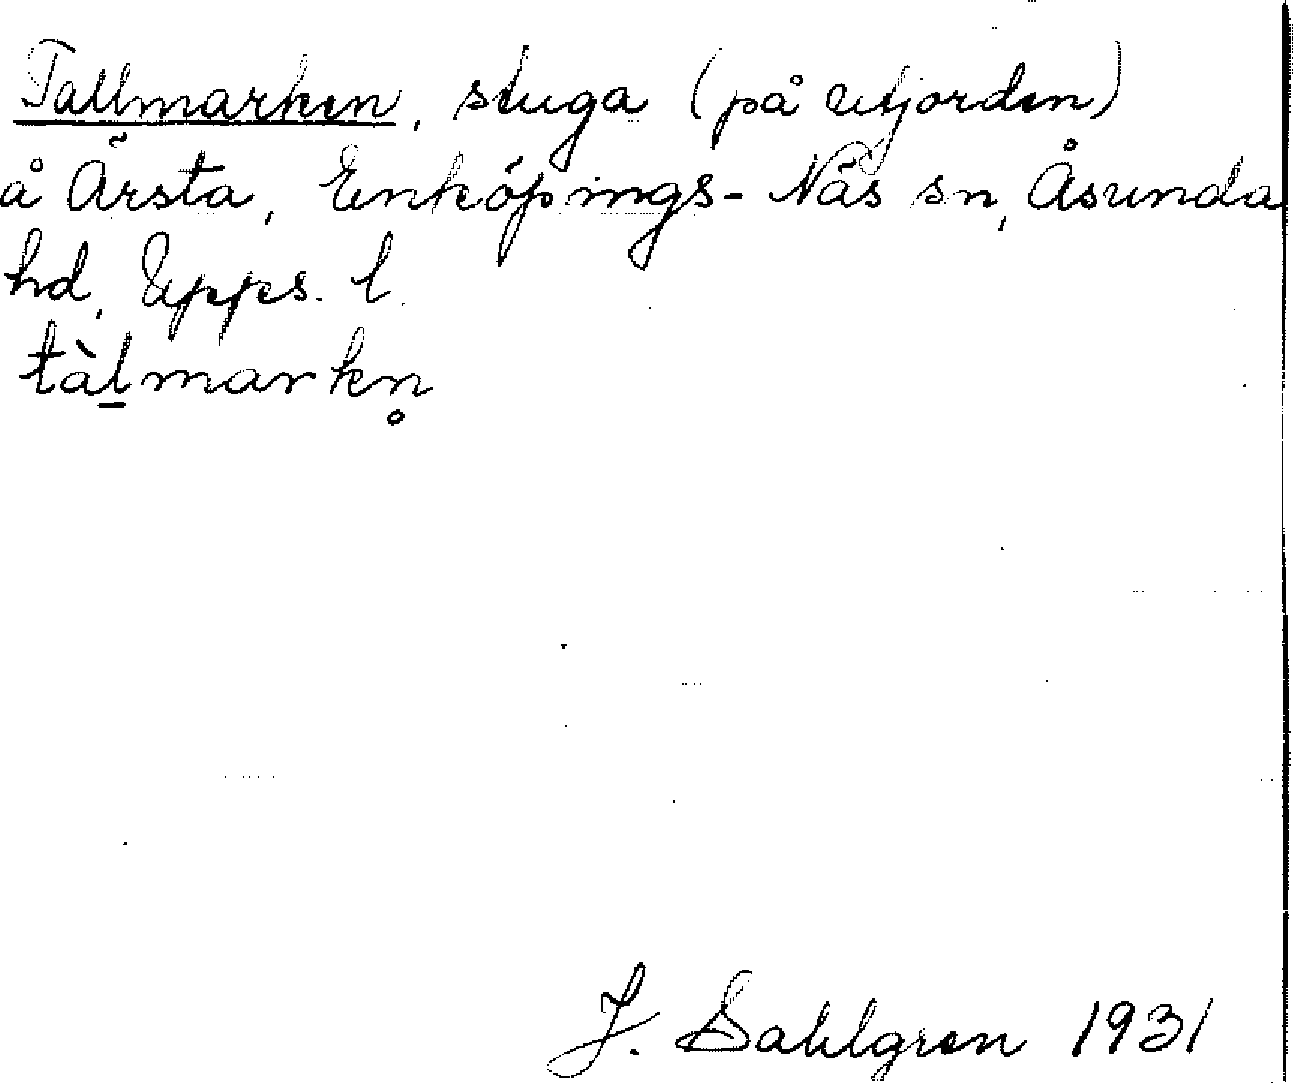 Tallmarken, stuga (på utjorden)
å Ärsta, Enköpings-Näs sn, Åsunda
hd, Upps. l.
tàl̠markn̥
J. Sahlgren 1931